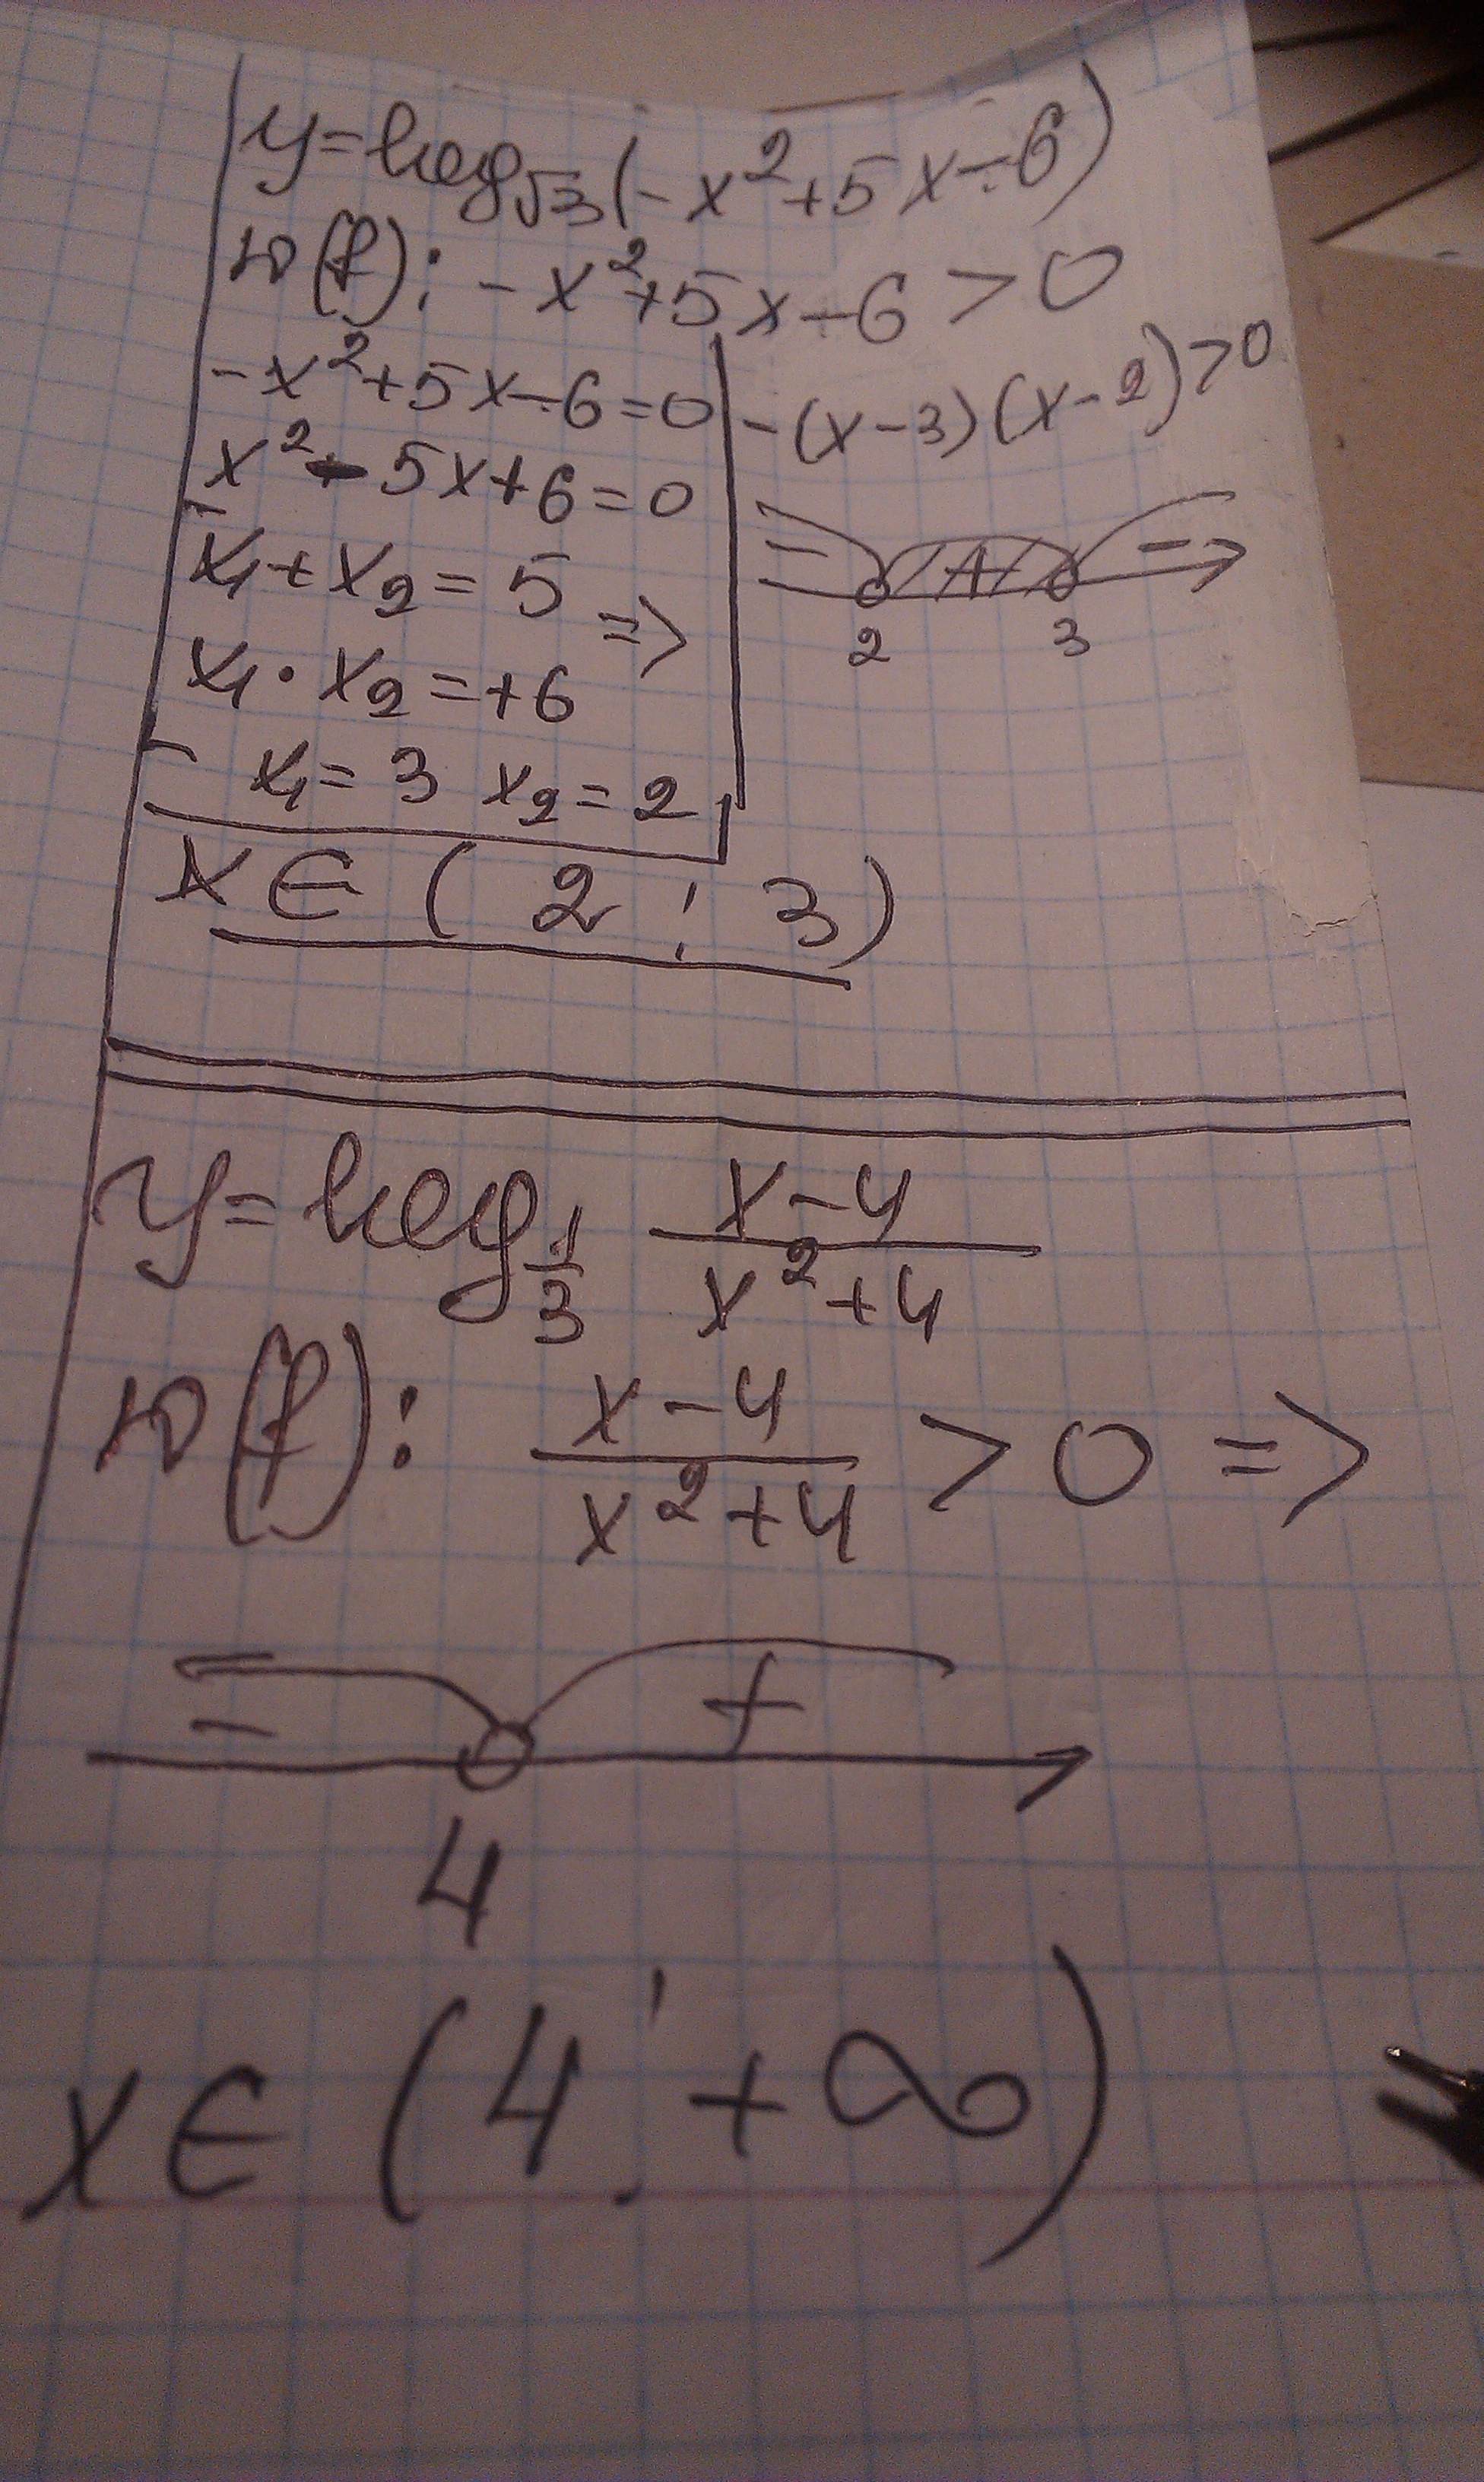 y=log√3(-x²+5x-6)
D(f): -x²+5x-6>0
-x²+5x-6=0
x²-5x+6=0
x₁+x₂=5
=>
x₁·x₂=+6
x₁=3 x₂=2
-(x-3)(x-2)>0
- + -
2 3
x∈(2;3)
y=log 1/3 (x-4)/(x²+4)
D(f): (x-4)/(x²+4)>0=>
- +
4
x∈(4;+∞)